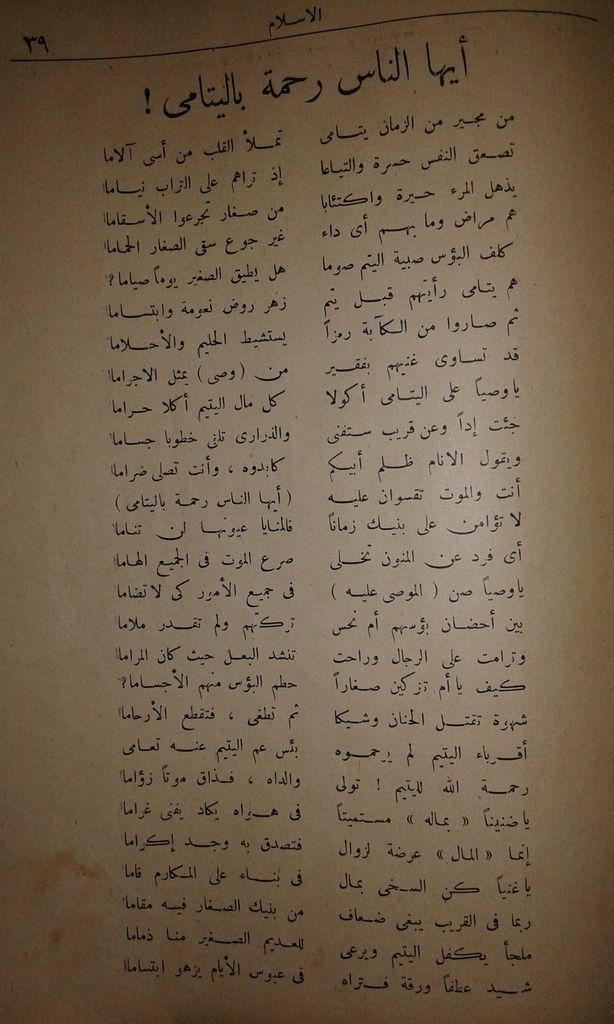 الاسلام
٣٩
أيها الناس رحمة باليتامى !
من مجير من الزمان يتامى تملأ القلب من أسى آلاما
تصعق النفس حسرة والتياعا إذ تراهم على التراب نياما
يذهل المرء حيرة واكتئابا من صغار تجرعوا الأسقاما
هم مراض وما بهم أى داء غير جوع سقى الصغار الحماما
كلف البؤس صبية اليتم صوما هل يطيق الصغير يوماً صياما؟
هم يتامى رأيتهم قبل يتم زهر روض نعومة وابتساما
ثم صاروا من الكآبة رمزاً يستشيط الحليم والأحلاما
قد تساوى غنيهم بفقير من ( وصى ) يمثل الاجراما
ياوصياً على اليتامى أكولا كل مال اليتيم أكلا حراما
جئت إداً وعن قريب ستفنى والذرارى تلقى خطوبا جساما
ويقول الانام ظلم أبيكم كابدوه ، وأنت تصلى ضراما
أنت والموت تقسوان عليه ( أيها الناس رحمة باليتامى )
لا تؤامن على بنيك زماناً فالمنايا عيونها لن تناما
أى فرد عن المنون تخلى صرع الموت فى الجميع الهاما
ياوصياً صن ( الموصى عليه ) فى جميع الأمور كى لا تضاما
بين أحضان بؤسهم أم نحس تركتهم ولم تقدر ملاما
وترامت على الرجال وراحت تنشد البعل حيث كان المراما
كيف يا أم تزكين صغاراً حطم البؤس منهم الأجساما؟
شهوة تمتل الحنان وشيكا ثم تطغى ، فتقطع الأرحاما
أقرباء اليتيم لم يرحموه بئس عم اليتيم عنه تعامى
رحمة الله لليتيم ! تولى والداه ، فذاق موتاً زؤاما
ياضنيناً « بماله » مستميتاً فى هواه يكاد يفنى غراما
إنما « المال » عرضة لزوال فتصدق به وجد إكراما
ياغنياً كن السخى بمال فى بناء على المكارم قاما
ربما فى القريب يبغى ضعاف من بنيك الصغار فيه مقاما
ملجأ يكفل اليتيم ويرعى للعديم الصغير منا ذماما
شيد عطفاً ورقة فتراه فى عبوس الأيام يزهو ابتساما